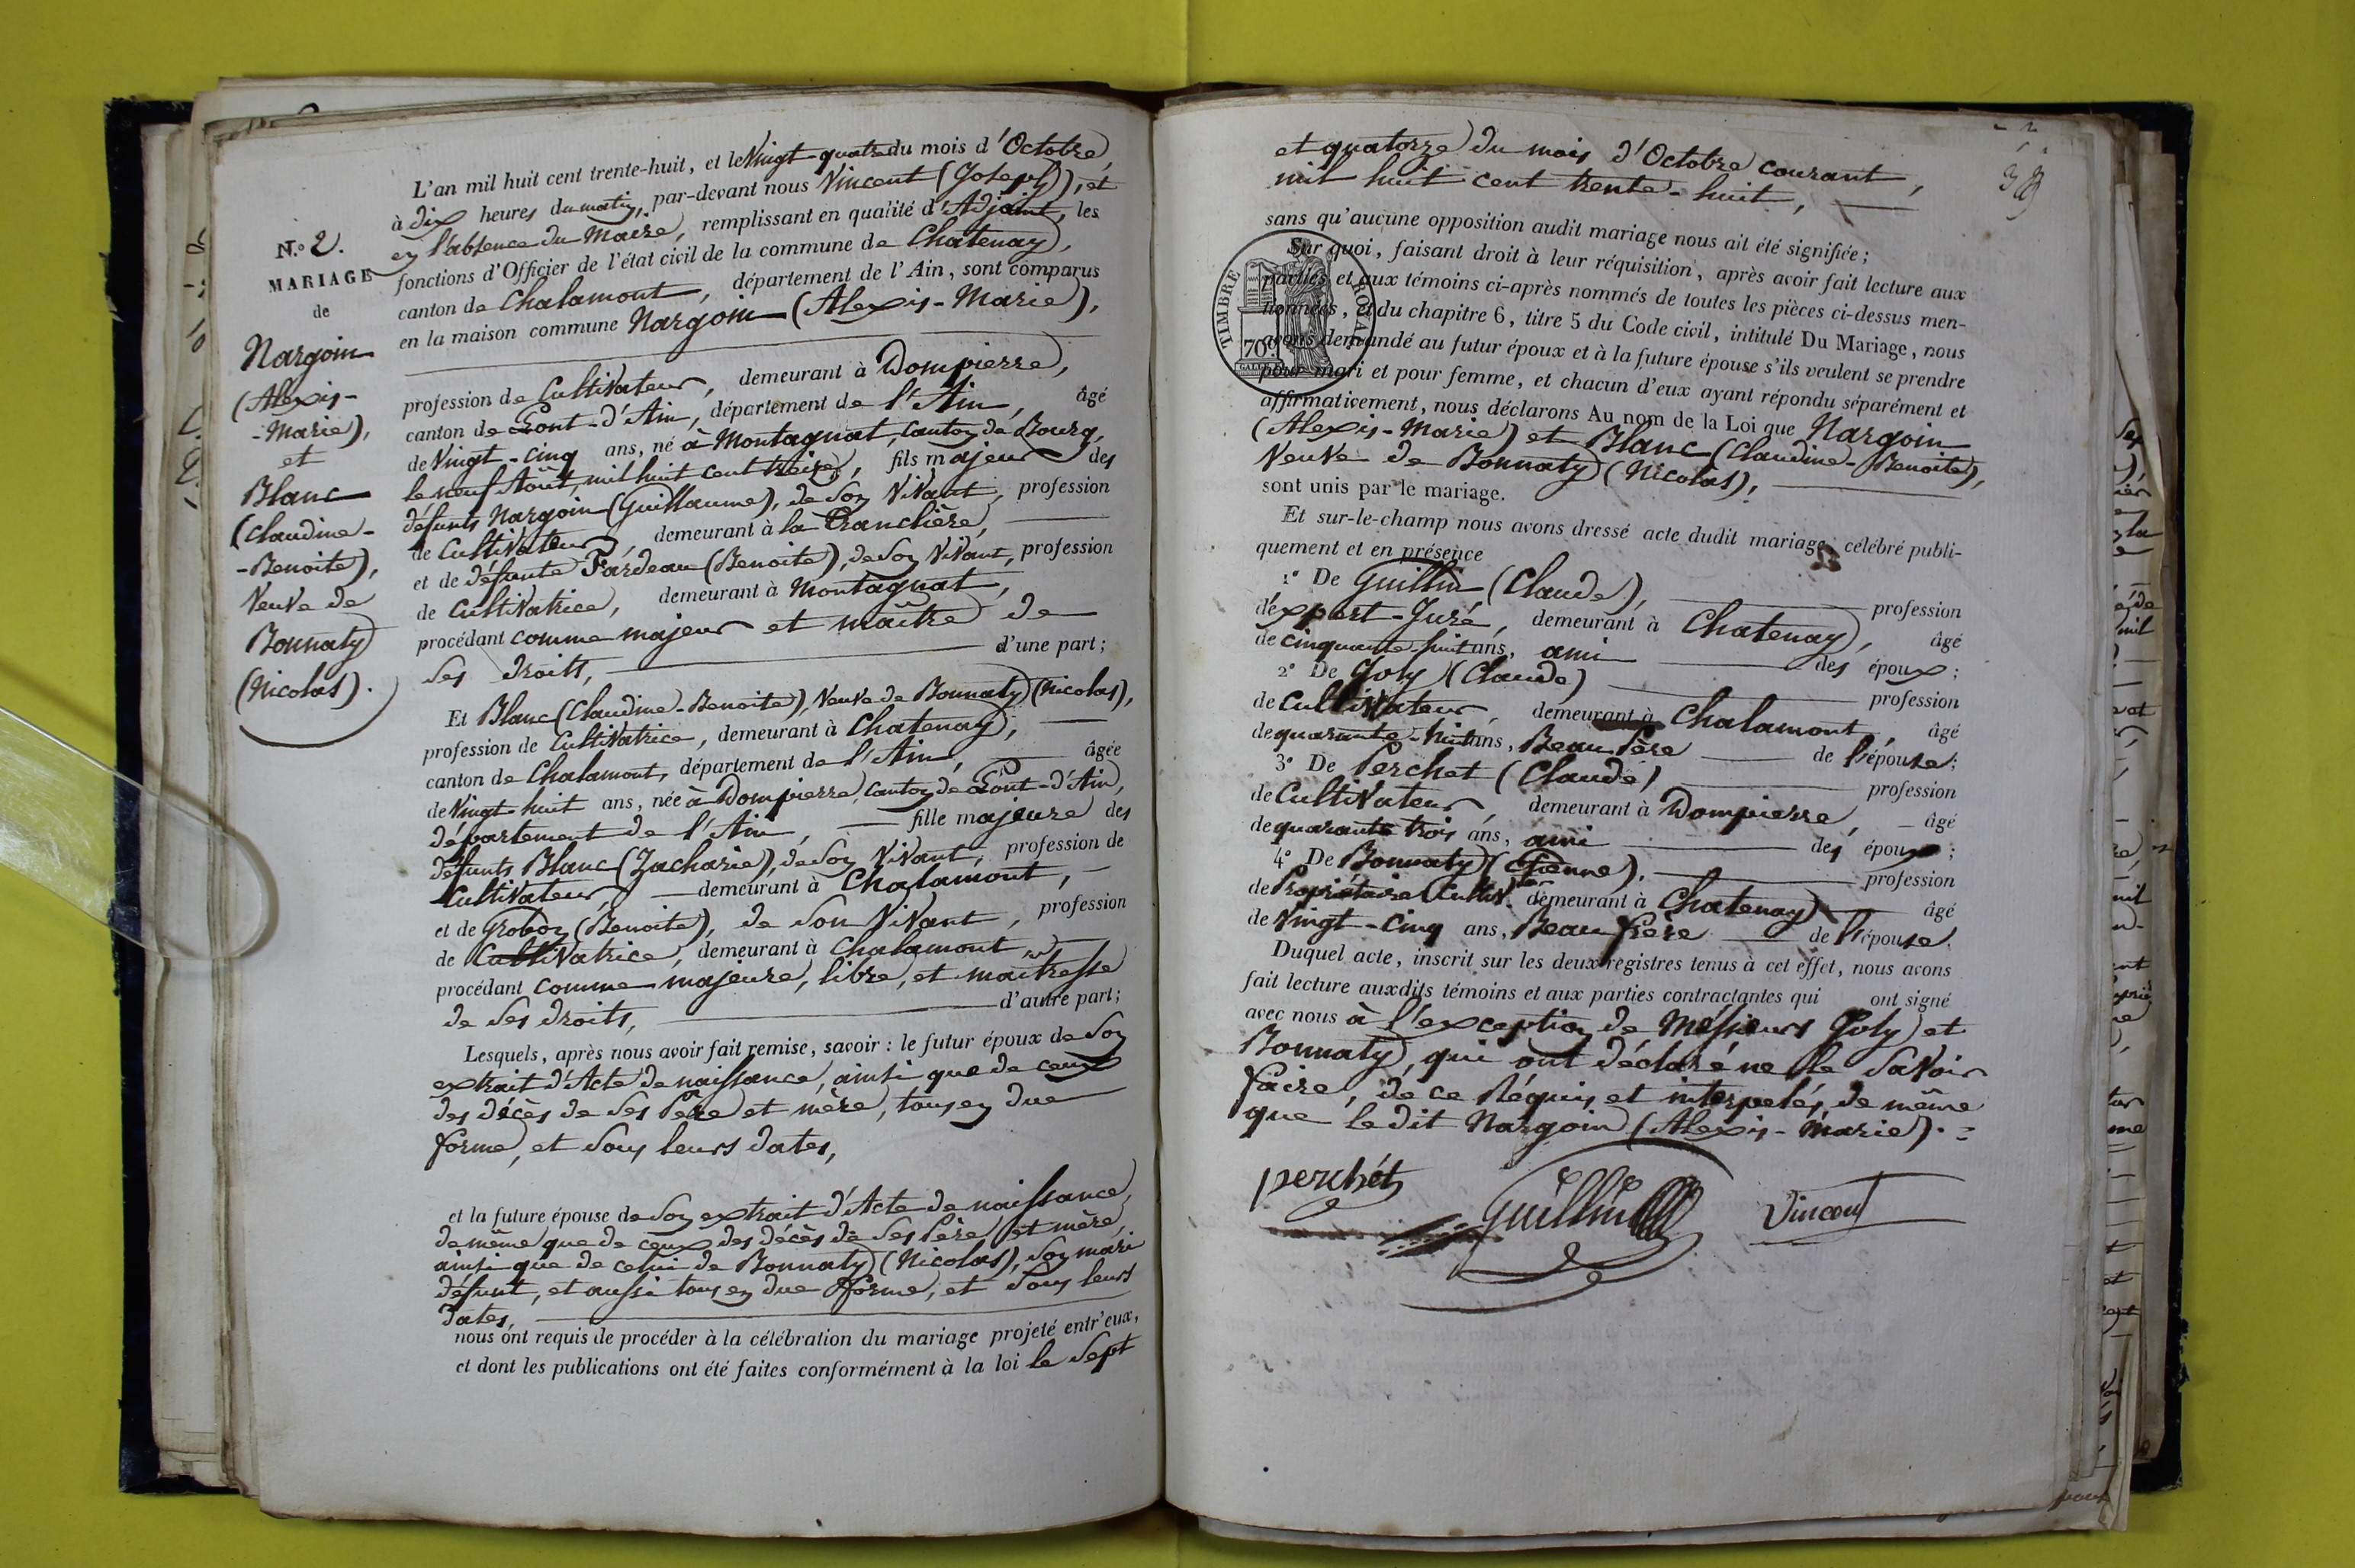 N.º 2.
MARIAGE
de
Nargoin
(Alexis-
-Marie),
et
Blanc
(Claudine-
-Benoite),
Veuve de
Bonnaty
(Nicolas).
L'an mil huit cent trente-huit, et le Vingt-quatre du mois d'Octobre,
à dix heures du matin, par-devant nous Vincent (Joseph), et
en l'absence du Maire, remplissant en qualité d'Adjoint, les
fonctions d'Officier de l'état civil de la commune de Chatenay,
canton de Chalamont, département de l'Ain, sont comparus
en la maison commune Nargoin (Alexis-Marie),
profession de Cultivateur, demeurant à Dompierre,
canton de Pont-d'Ain, département de l'Ain, âgé
de Vingt-cinq ans, né à Montagnat, canton de Bourg,
le neuf Août, mil huit cent treize, fils majeur des
défunts Nargoin (Guillaume), de son Vivant, profession
de Cultivateur, demeurant à la Tranclière,
et de défunte Fardeau (Benoite), de son Vivant, profession
de Cultivatrice, demeurant à Montagnat,
procédant comme majeur et maître de
ses droits, d'une part;
Et Blanc (Claudine-Benoite), Veuve de Bonnaty (Nicolas),
profession de Cultivatrice, demeurant à Chatenay,
canton de Chalamont, département de l'Ain, âgée
de Vingt-huit ans, née à Dompierre, canton de Pont-d'Ain,
département de l'Ain, fille majeure des
défunts Blanc (Zacharie), de son Vivant, profession de
Cultivateur, demeurant à Chalamont,
et de Grobon (Benoite), de son Vivant, profession
de Cultivatrice, demeurant à Chalamont
procédant comme majeure, libre, et maîtresse
de ses droits, d'autre part;
Lesquels, après nous avoir fait remise, savoir: le futur époux de son
extrait d'Acte de naissance, ainsi que de ceux
des décès de ses Père et mère, tous en due
forme, et sous leurs dates,
et la future épouse de son extrait d'Acte de naissance,
de même que de ceux des décès de ses Père et mère,
ainsi que de celui de Bonnaty (Nicolas), son mari
défunt, et aussi tous en due forme, et sous leurs
dates,
nous ont requis de procéder à la célébration du mariage projeté entr'eux,
et dont les publications ont été faites conformément à la loi le sept
et quatorze du mois d'Octobre courant,
mil huit cent trente-huit,
sans qu'aucune opposition audit mariage nous ait été signifiée;
Sur quoi, faisant droit à leur réquisition, après avoir fait lecture aux
parties et aux témoins ci-après nommés de toutes les pièces ci-dessus men-
tionnées, et du chapitre 6, titre 5 du Code civil, intitulé Du Mariage, nous
avons demandé au futur époux et à la future épouse s'ils veulent se prendre
pour mari et pour femme, et chacun d'eux ayant répondu séparément et
affirmativement, nous déclarons Au nom de la Loi que Nargoin
(Alexis-Marie) et Blanc (Claudine-Benoite),
Veuve de Bonnaty (Nicolas),
sont unis par le mariage.
Et sur-le-champ nous avons dressé acte dudit mariage, célébré publi-
quement et en présence
1º De Guillin (Claude), profession
d'expert-Juré, demeurant à Chatenay, âgé
de cinquante-huit ans, ami des époux;
2º De Joly (Claude) profession
de Cultivateur, demeurant à Chalamont, âgé
de quarante-huit ans, Beau Père de l'épouse;
3º De Perchet (Claude) profession
de Cultivateur, demeurant à Dompierre, âgé
de quarante trois ans, ami des époux;
4º De Bonnaty (Etienne), profession
de Propriétaire Cultiv.teur demeurant à Chatenay âgé
de Vingt-Cinq ans, Beau frère de l'épouse.
Duquel acte, inscrit sur les deux registres tenus à cet effet, nous avons
fait lecture auxdits témoins et aux parties contractantes qui ont signé
avec nous à l'exception de Messieurs Joly et
Bonnaty, qui ont déclaré ne le savoir
faire, de ce Réquis et interpelés, de même
que le dit Nargoin (Alexis-Marie).
perchet Guillin Vincent
TIMBRE ROYAL
70